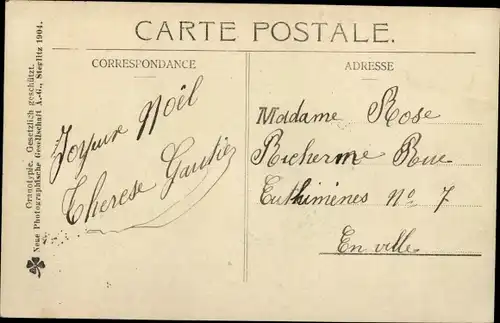 CARTE POSTALE.
CORRESPONDANCE
ADRESSE
Joyeux Noël
Therese Gautier
Madame Rose
Richerme Rue
Euthiménes No 7
En ville.
Orthotypie. Gesetzlich geschützt.
Neue Photographische Gesellschaft A.-G., Steglitz 1904.